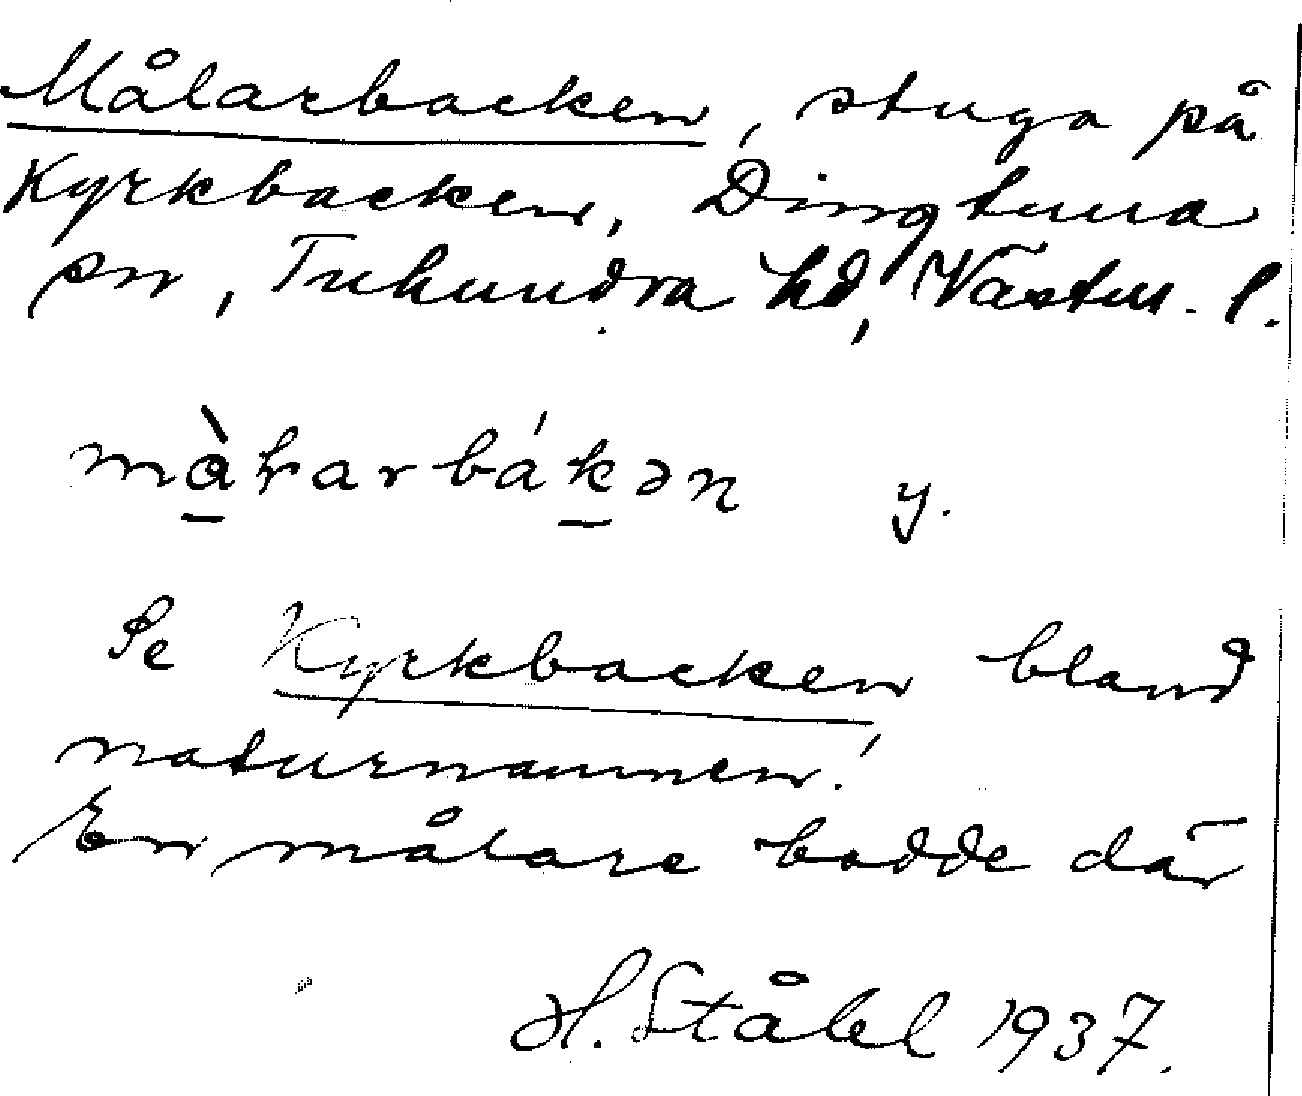 Målarbacken, stuga på
Kyrkbacken, Dingtuna
sn, Tuhundra hd, Västm. l.
y.
Se Kyrkbacken bland
naturnamnen!
En målare bodde där
H. Ståhl 1937.